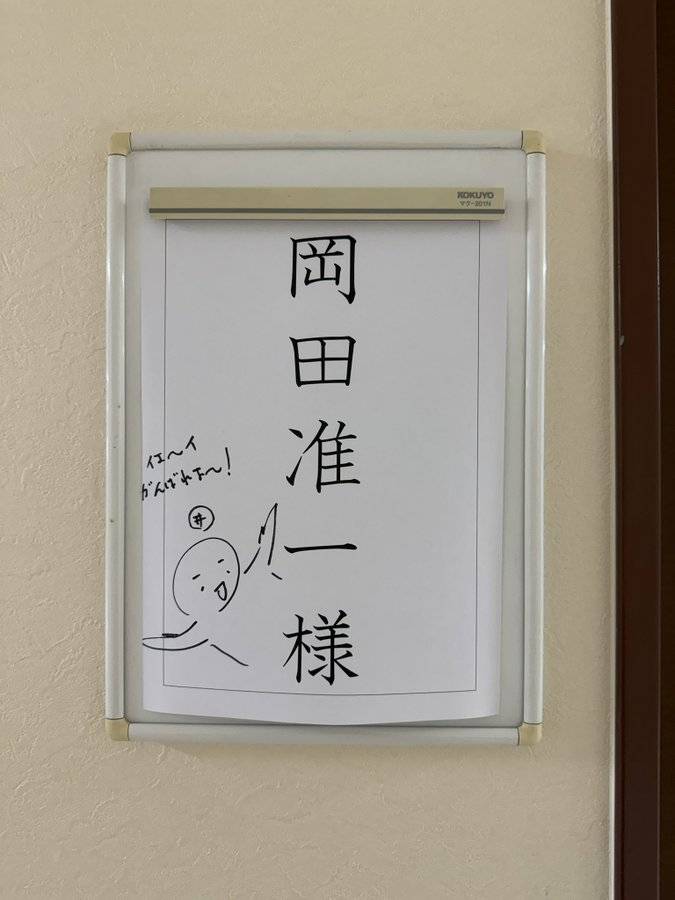 KOKUYO
マグ-201N
岡田准一様
イエ〜イ
がんばれよ〜!
井